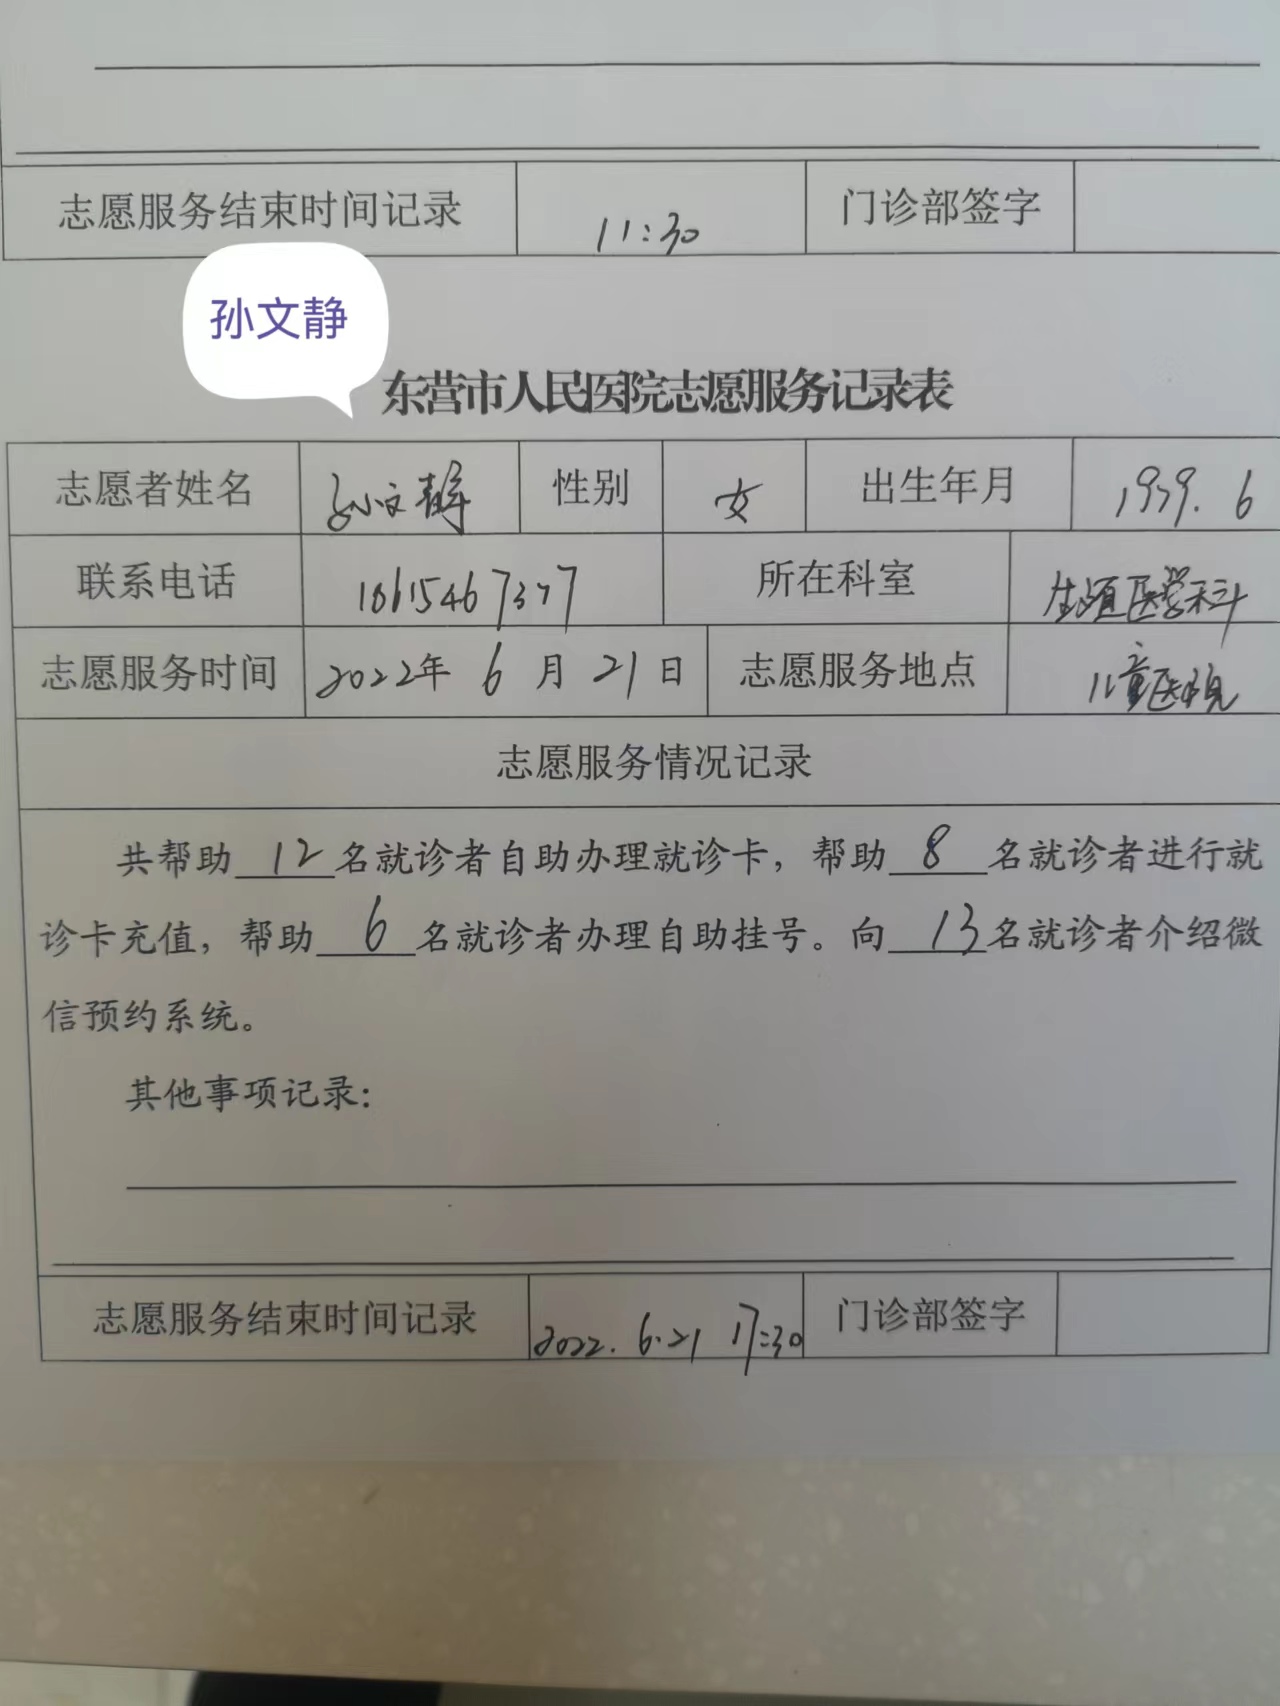 志愿服务结束时间记录 11:30 门诊部签字
孙文静
东营市人民医院志愿服务记录表
志愿者姓名 孙文静 性别 女 出生年月 1979.6
联系电话 所在科室 生殖医学科
志愿服务时间 2022年 6 月 21 日 志愿服务地点 儿童医院
志愿服务情况记录
共帮助 12 名就诊者自助办理就诊卡，帮助 8 名就诊者进行就
诊卡充值，帮助 6 名就诊者办理自助挂号。向 13 名就诊者介绍微
信预约系统。
其他事项记录：
志愿服务结束时间记录 2022.6.21 17:30 门诊部签字